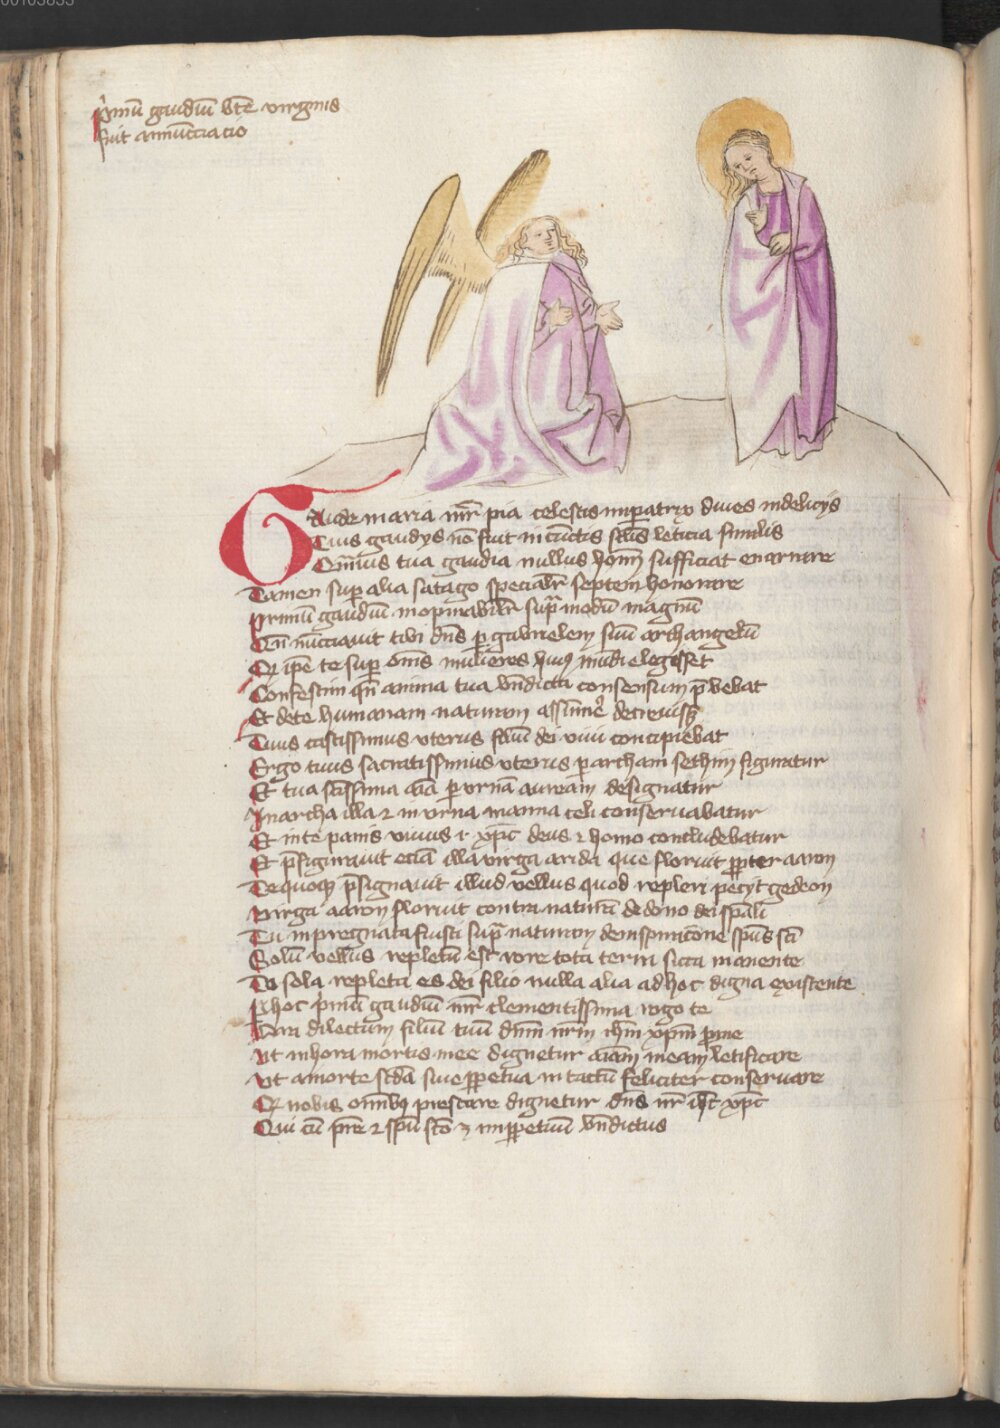 p̄mū gaudiū bt̄e virginis
fuit annūcciacio
Gaude maria mr̄ pia celestis imꝑatrix diues in delicijs
Tuis gaudijs nō fuit in cūctis sclīs leticia similis
Om̄ius tua gaudia nullus hom̄ sufficiat enarrare
Tamen suꝑ alia satago specialr̄ septem honorare
Primū gaudiū inopinabilr̄ supᷓ modū magnū
Qn̄ nūcciauit tibi dn̄s ꝑ gabrielem suū archangelū
Qꝫ ip̄e te suꝑ om̄s mulieres huiꝰ mūdi elegisset
Confestim qn̄ anima tua bn̄dicta consensum p̄bebat
Et de te humanam naturam assūmē decreuisꝫ
Tuus castissimus vterus filiū dei viui concipiebat
Ergo tuus sacratissimus vterus ꝑ archam sethim figuratur
Et tua sc̄issima aīa ꝑ vrnā auream designatur
In archa illa ⁊ in vrna manna celi conseruabatur
Et in te panis viuus i xp̄c deus ⁊ homo concludebatur
Et p̄figurauit eciā illa virga arida que floruit ꝓpter aaron
Te quoqꝫ p̄signauit illud vellus quod repleri pecijt gedeon
Virga aaron floruit contra naturā de dono dei sp̄ali
Tu inpregnata fuisti supᷓ naturam de inspiracōne sp̄us sc̄i
Solū vellus repletū est rore tota terra sicca manente
Tu sola repleta es dei filio nulla alia ad hoc digna existente
P hoc p̄mū gaudiū mr̄ clementissima rogo te
Ora dilectum filiū tuū dn̄m nr̄m ihm̄ xp̄m ꝓ me
Ut in hora mortis mee dignetur aīam meam letificare
Vt a morte scd̄a siue ꝑpetua intactū feliciter conseruare
Qꝫ nobis om̄ibꝫ prestare dignetur dn̄s nr̄ ih̄c xp̄c
Qui cū pr̄e ⁊ sp̄u sc̄o ⁊ inꝑpetuū bn̄dictus